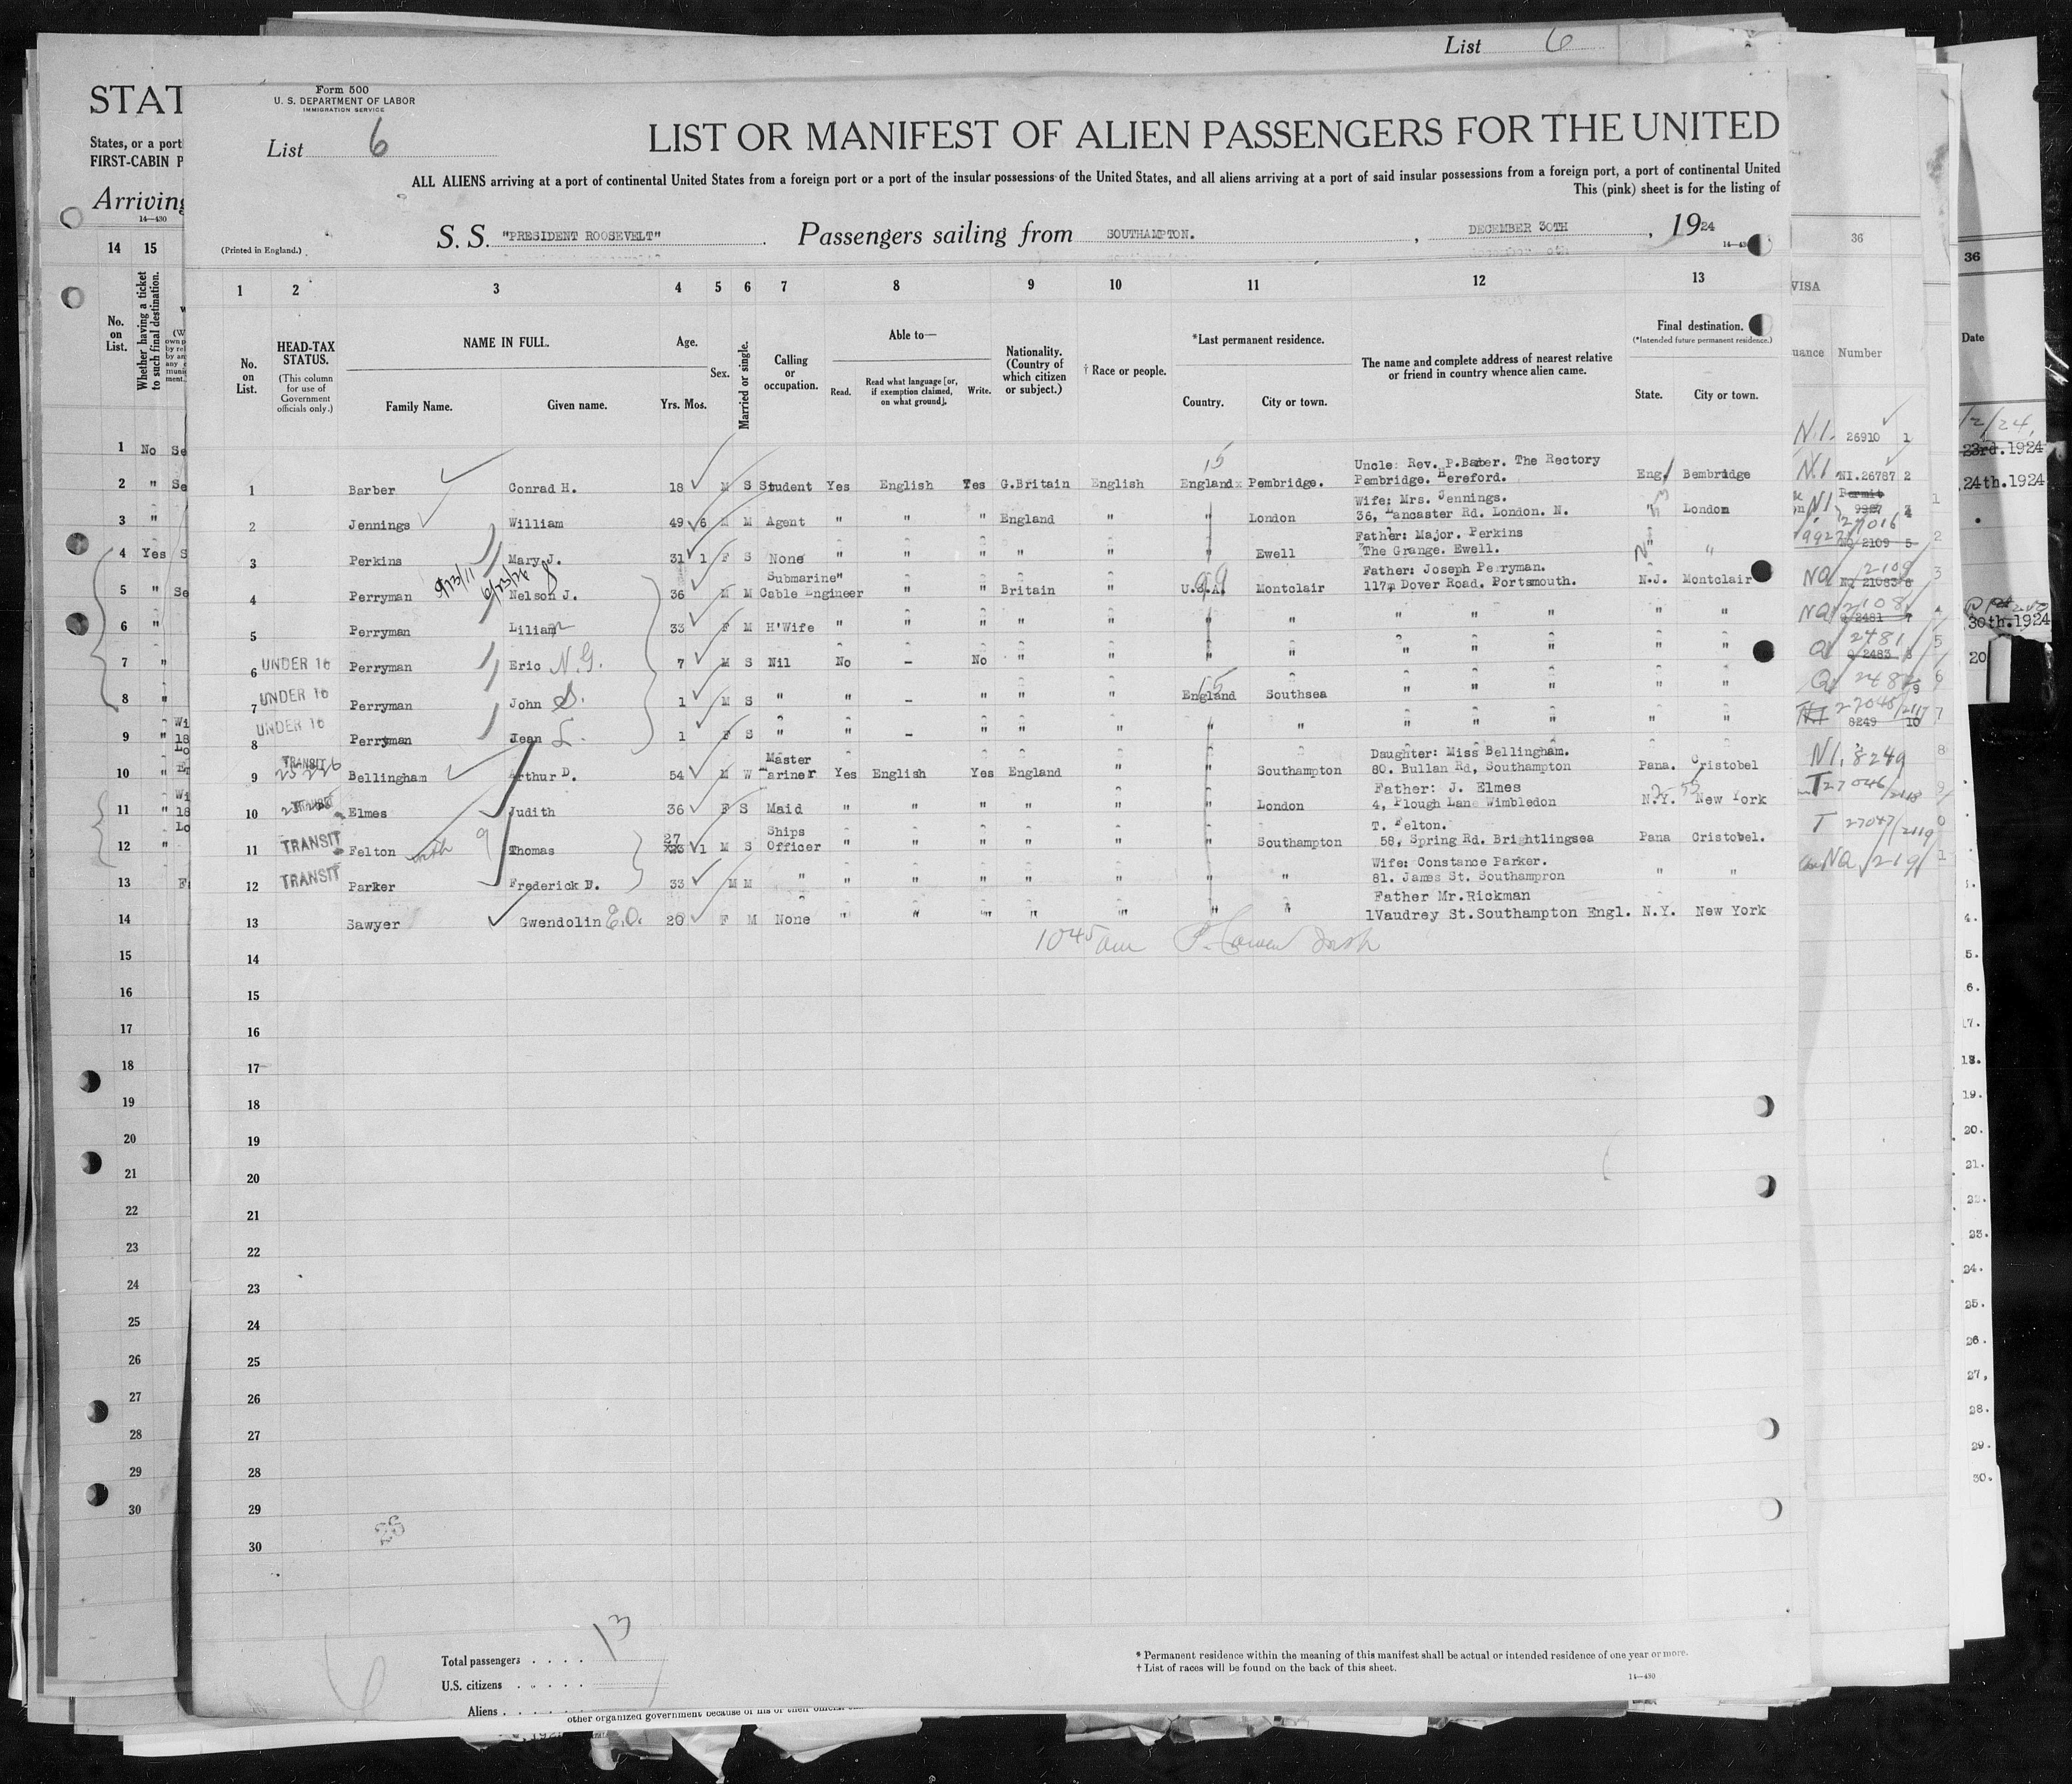 List 6
STAT
Form 500
U. S. DEPARTMENT OF LABOR
IMMIGRATION SERVICE
List 6
LIST OR MANIFEST OF ALIEN PASSENGERS FOR THE UNITED
States, or a port
FIRST-CABIN P
ALL ALIENS arriving at a port of continental United States from a foreign port or a port of the insular possessions of the United States, and all aliens arriving at a port of said insular possessions from a foreign port, a port of continental United
This (pink) sheet is for the listing of
Arriving
14—430
(Printed in England.)
S. S. "PRESIDENT ROOSEVELT" . Passengers sailing from SOUTHAMPTON. , DECEMBER 30TH , 1924
1 2 3 4 5 6 7 8 9 10 11 12 13
No. on List.
HEAD-TAX STATUS.
(This column for use of Government officials only.)
NAME IN FULL.
Family Name. Given name.
Age.
Yrs. Mos.
Sex.
Married or single.
Calling or occupation.
Able to—
Read. Read what language [or, if exemption claimed, on what ground]. Write.
Nationality. (Country of which citizen or subject.)
† Race or people.
*Last permanent residence.
Country. City or town.
The name and complete address of nearest relative or friend in country whence alien came.
Final destination.
(*Intended future permanent residence.)
State. City or town.
15
Uncle: Rev. P.Baber. The Rectory
1 Barber Conrad H. 18 M S Student Yes English Yes G.Britain English England Pembridge. Pembridge. Hereford. Eng. Bembridge
Wife: Mrs. Jennings.
2 Jennings William 49 6 M M Agent " " " England " " London 36, Lancaster Rd. London. N. " London
Father: Major. Perkins
3 Perkins Mary J. 31 1 F S None " " " " " " Ewell The Grange. Ewell. " "
9/13/11 6/23/26
Submarine" Father: Joseph Perryman.
4 Perryman Nelson J. 36 M M Cable Engineer " " Britain " U.S.A. Montclair 117, Dover Road. Portsmouth. N.J. Montclair
5 Perryman Lilian 33 F M H'Wife " " " " " " " " " " " "
6 UNDER 16 Perryman Eric N.G. 7 M S Nil No - No " " " " " " " " "
7 UNDER 16 Perryman John S. 1 M S " " - " " " England Southsea " " " " "
8 UNDER 16 Perryman Jean L. 1 F S " " - " " " " " " " " " "
Master Daughter: Miss Bellingham.
9 TRANSIT Bellingham Arthur D. 54 M W Mariner Yes English Yes England " " Southampton 80. Bullan Rd, Southampton Pana. Cristobel
Father: J. Elmes
10 Elmes Judith 36 F S Maid " " " " " " London 4, Plough Lane Wimbledon N.Y. New York
27 Ships T. Felton.
11 TRANSIT Felton Thomas 1 M S Officer " " " " " " Southampton 58, Spring Rd. Brightlingsea Pana Cristobel.
Wife: Constance Parker.
12 TRANSIT Parker Frederick D. 33 M M " " " " " " " " 81. James St. Southampron " "
Father Mr.Rickman
13 Sawyer Gwendolin E.O. 20 F M None " " " " " " " 1Vaudrey St.Southampton Engl. N.Y. New York
1045 am
14
15
16
17
18
19
20
21
22
23
24
25
26
27
28
29
30
26
Total passengers . . . . 13
U.S. citizens . . . . .
Aliens . . . . . .
* Permanent residence within the meaning of this manifest shall be actual or intended residence of one year or more.
† List of races will be found on the back of this sheet.
14—430
14 15
No. on List.
Whether having a ticket to such final destination.
1 No Se
2 " Se
3 "
4 Yes S
5 " Se
6 "
7 "
8 "
9 "
10 "
11 "
12 "
13
14
15
16
17
18
19
20
21
22
23
24
25
26
27
28
29
30
36
VISA
uance Number
N.I. 26910 1
N.I NI.26787 2
Permit
NQ 2109 5
Q 2481
Q 2483
8249 10
NI. 8249
T 27046/2118
T 27047/2119
36
Date
12/24.
23rd.1924
24th.1924
30th.1924
20